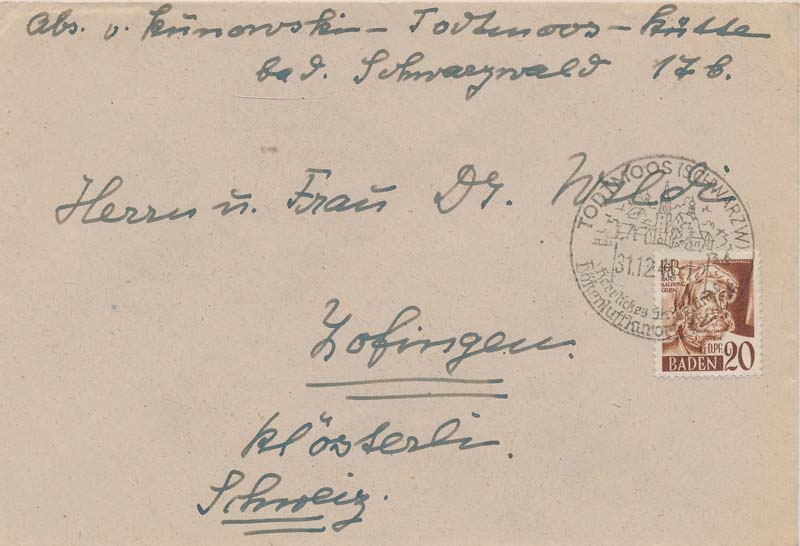 Abs. v. Künowski - Todtmoos - Hütte
bad. Schwarzwald 17b.
Herrn u. Frau Dr. Wildi
TODTMOOS (SCHWARZW)
31.12.4
Höhenluftkurort
BALDUNG
D.PF.
BADEN 20
Zofingen.
Klösterli.
Schweiz.